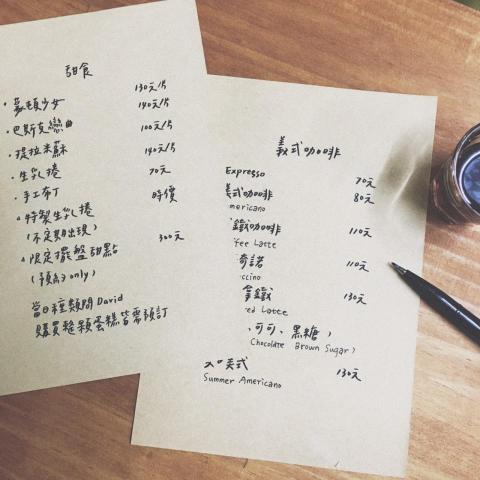 甜食
・蒙頓少女 130元/片
・巴斯克戀曲 140元/片
・提拉米蘇 100元/片
・生乳捲 140元/片
・手工布丁 70元
▵特製生乳捲 時價
(不定期出現)
▵限定擺盤甜點 300元
(預約only)
當日種類問David
購買整顆蛋糕皆需預訂
義式咖啡
Espresso 70元
義式咖啡 80元
mericano
鐵咖啡 110元
fee Latte
奇諾 110元
ccino
拿鐵 130元
ed Latte
、可可、黑糖)
Chocolate Brown Sugar)
美式 130元
Summer Americano